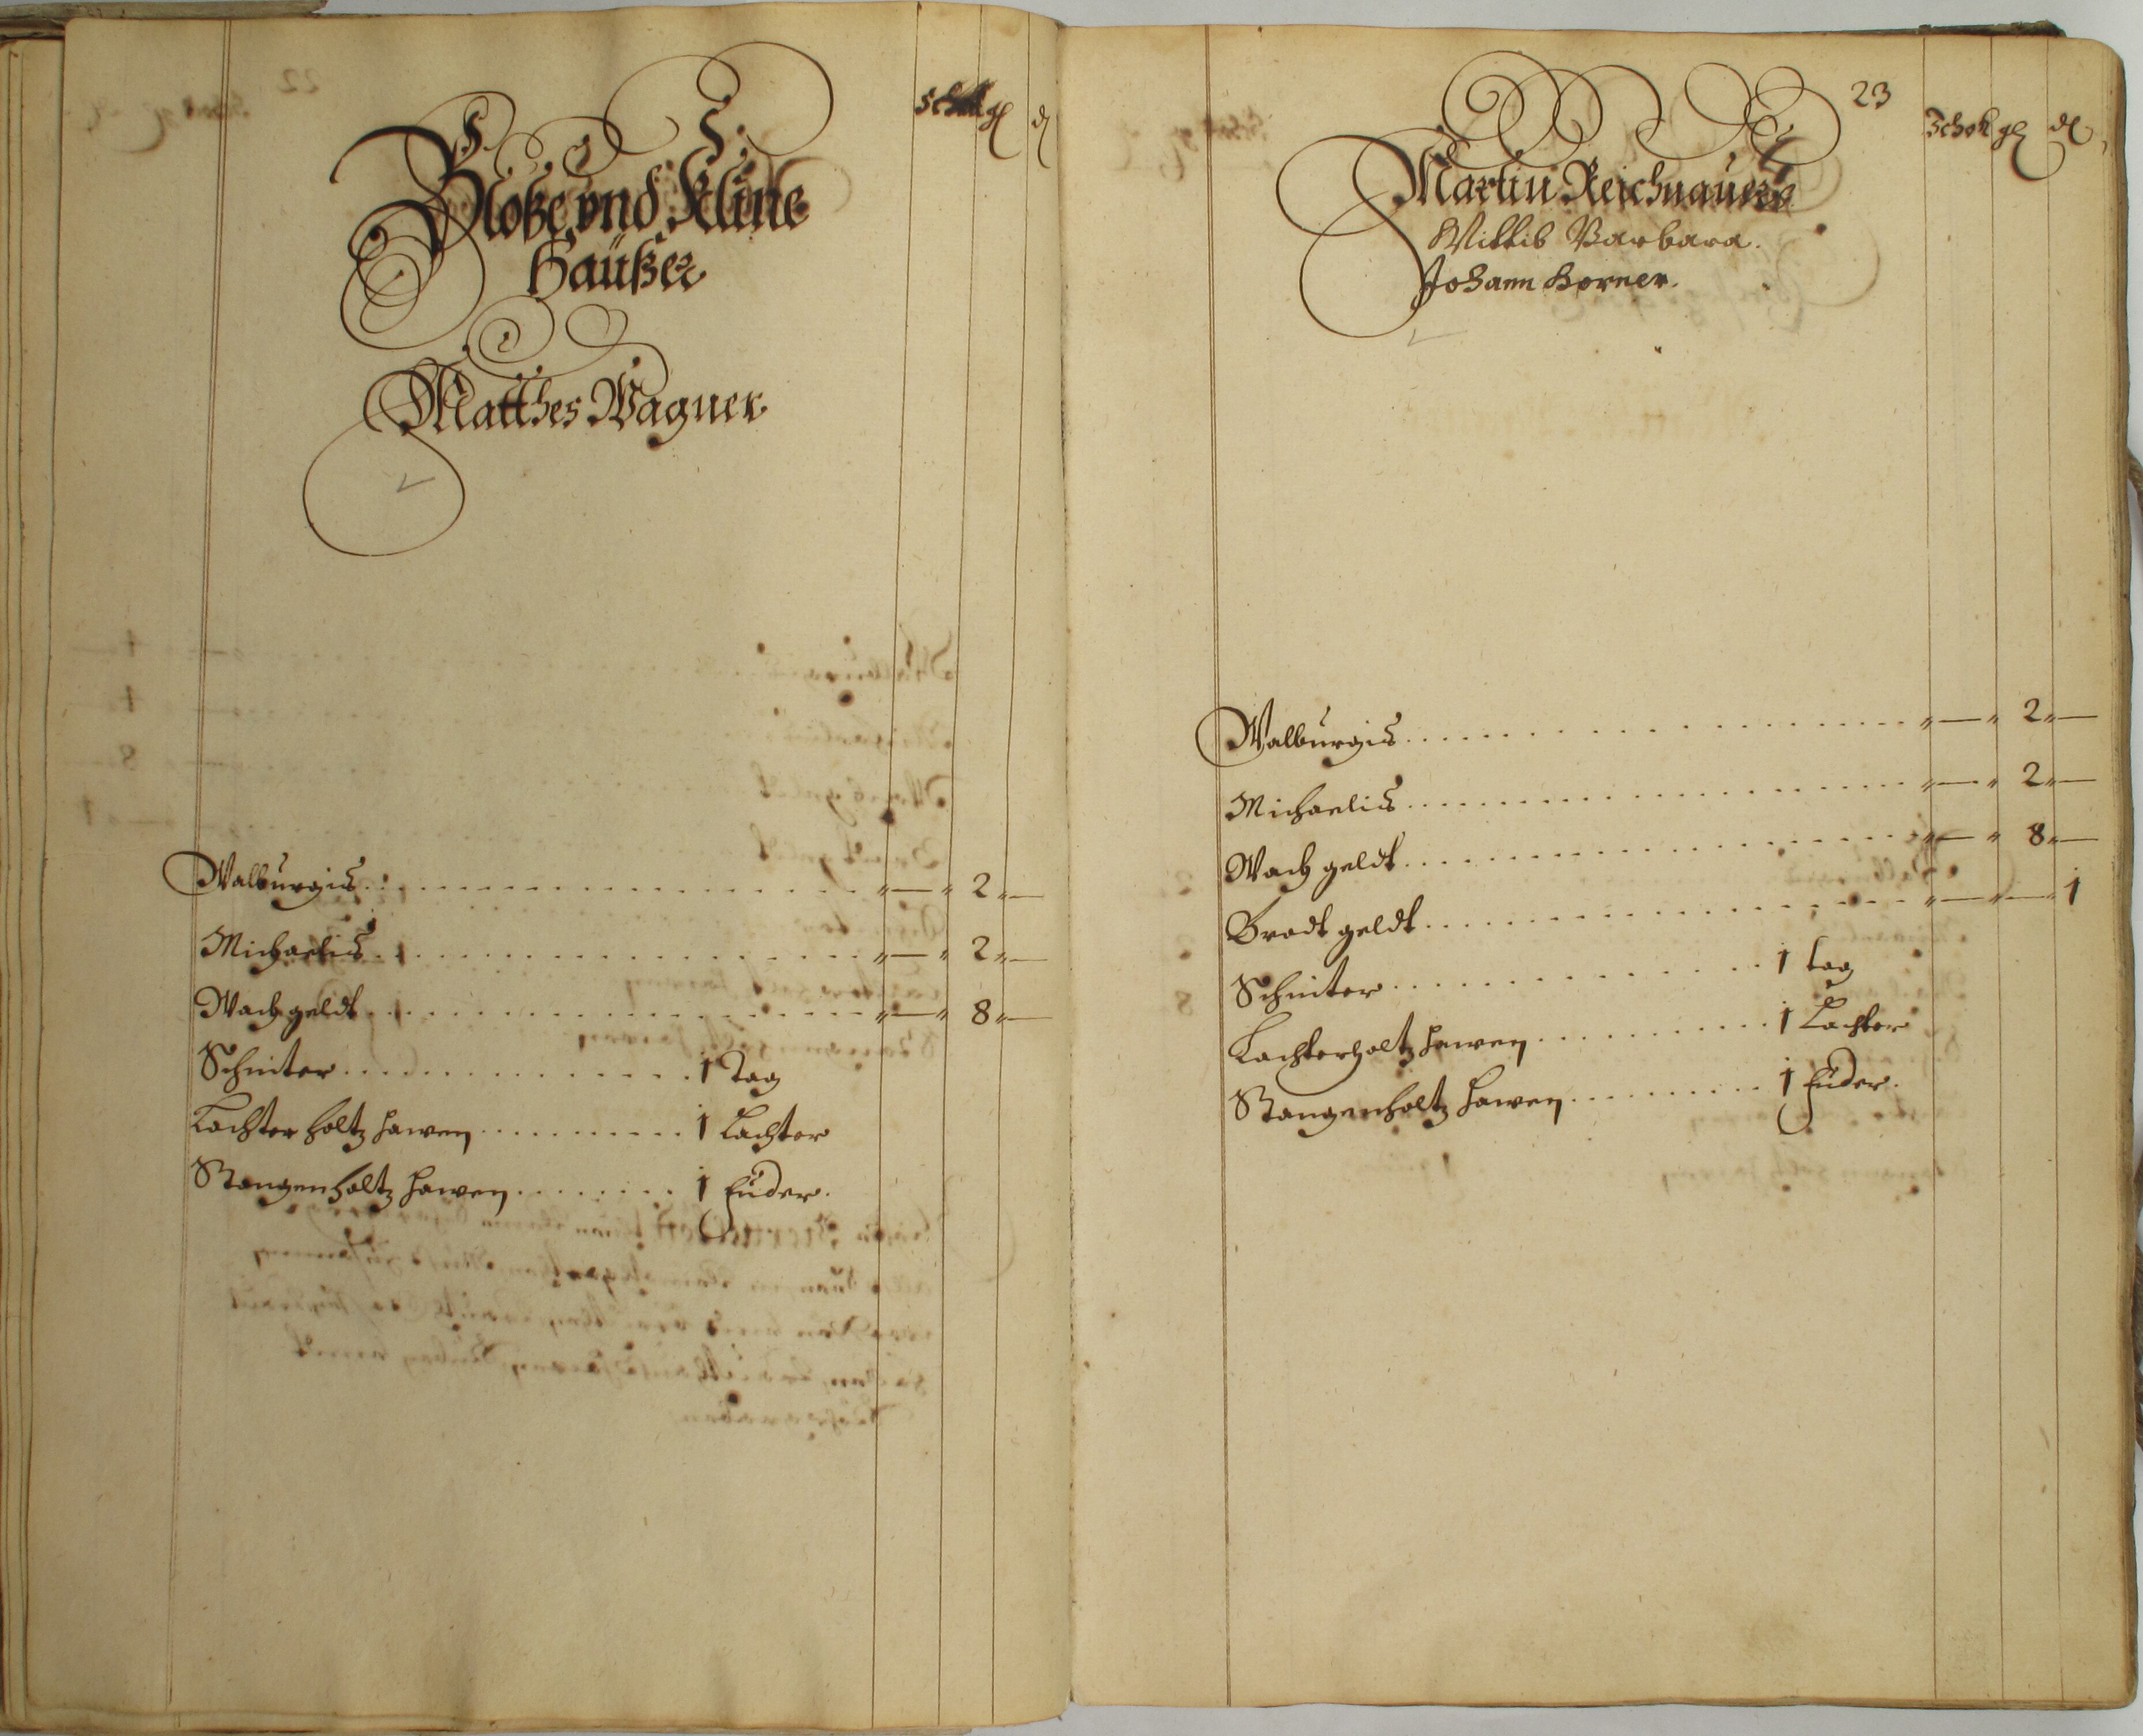 Schok gl d
Bloße vnd Kline
Haüßer
Matthes Wagner
Walburgis . . . . . . . . . . „ — „ 2 „ —
Michaelis . . . . . . . . . . „ — „ 2 „ —
Wach geldt . . . . . . . . . . „ — „ 8 „ —
Schniter . . . . . . . . . . 1 Tag
Lachter holtz hawen . . . . . . . . . . 1 Lachter
Stangenholtz hawen . . . . . . . . 1 Fuder.
23
Schok gl dl
Martin Reichnauers
Wittib Barbara.
Johann Horner.
Walburgis . . . . . . . . . . „ — „ 2 „ —
Michaelis . . . . . . . . . . „ — „ 2 „ —
Wach geldt . . . . . . . . . . „ — „ 8 „ —
Brodt geldt . . . . . . . . . . „ — „ — 1
Schniter . . . . . . . . . . 1 tag
Lachterholtz hawen . . . . . . . . . . 1 Lachter
Stangenholtz hawen . . . . . . . . 1 Fuder.